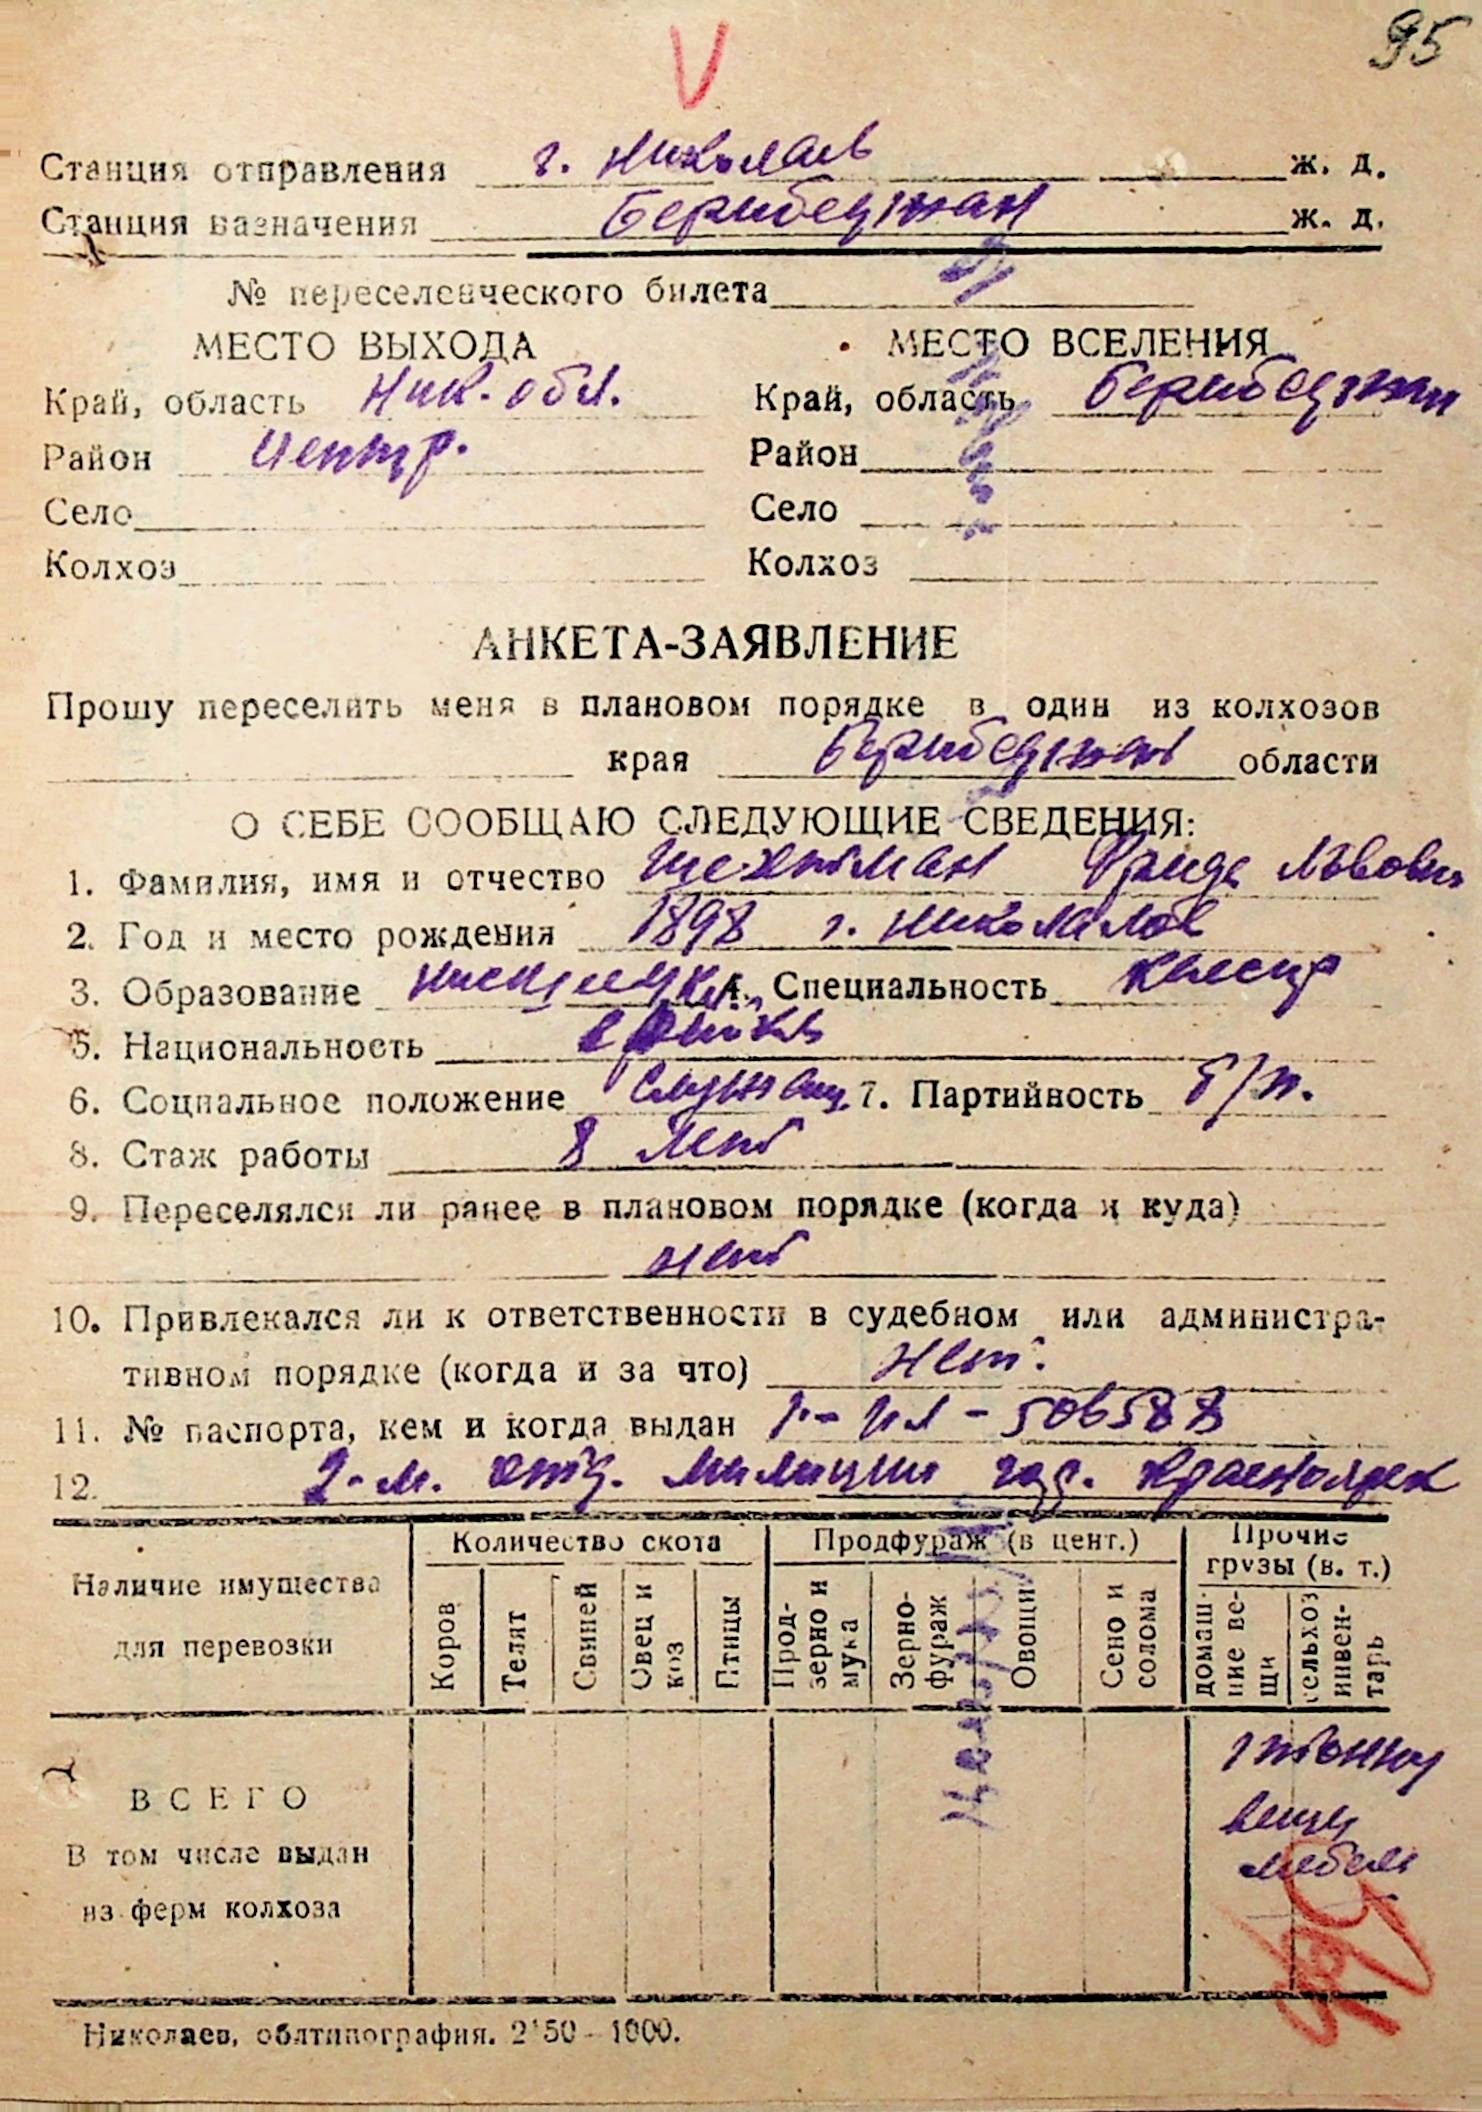 95
Станция отправления г. Николаев ж. д.
Станция назначения Берибеджан ж. д.
№ переселенческого билета
МЕСТО ВЫХОДА
Край, область Ник. обл.
Район Центр.
Село
Колхоз
МЕСТО ВСЕЛЕНИЯ
Край, область Берибеджан
Район
Село
Колхоз
АНКЕТА-ЗАЯВЛЕНИЕ
Прошу переселить меня в плановом порядке в один из колхозов
края Берибеджан области
О СЕБЕ СООБЩАЮ СЛЕДУЮЩИЕ СВЕДЕНИЯ:
1. Фамилия, имя и отчество Шехтман Фрида Львовн
2. Год и место рождения 1898 г. Николаев
3. Образование 4. Специальность касир
5. Национальность еврейка
6. Социальное положение служащ. 7. Партийность б/п.
8. Стаж работы 8 лет
9. Переселялся ли ранее в плановом порядке (когда и куда)
нет
10. Привлекался ли к ответственности в судебном или администра-
тивном порядке (когда и за что) нет.
11. № паспорта, кем и когда выдан 506588
12. 2-м. отд. милиции гор. Красноярск
Наличие имущества
для перевозки
Количество скота
Коров
Телят
Свиней
Овец и
коз
Птицы
Продфураж (в цент.)
Прод-
зерно и
мука
Зерно-
фураж
Овощи
Сено и
солома
Прочие
грузы (в. т.)
домаш-
ние ве-
щи
сельхоз
инвен-
тарь
ВСЕГО
В том числе выдан
из ферм колхоза
1 тонну
вещи
мебели
Николаев, облтипография. 2'50 - 1000.